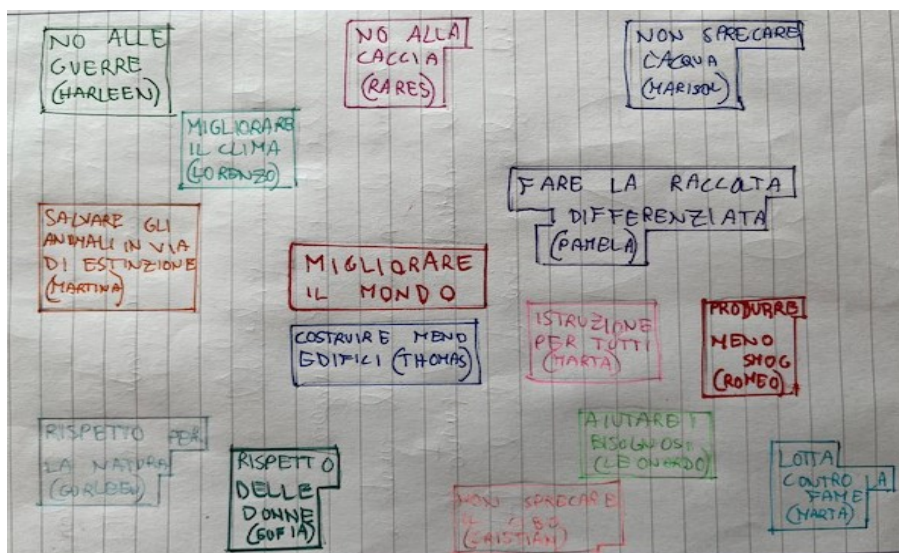 NO ALLE
GUERRE
(HARLEEN)
NO ALLA
CACCIA
(RARES)
NON SPRECARE
L'ACQUA
(MARISOL)
MIGLIORARE
IL CLIMA
(LORENZO)
FARE LA RACCOLTA
DIFFERENZIATA
(PAMELA)
SALVARE GLI
ANIMALI IN VIA
DI ESTINZIONE
(MARTINA)
MIGLIORARE
IL MONDO
COSTRUIRE MENO
EDIFICI (THOMAS)
ISTRUZIONE
PER TUTTI
(MARTA)
PRODURRE
MENO
SMOG
(ROMEO)
RISPETTO PER
LA NATURA
(GURLEEN)
RISPETTO
DELLE
DONNE
(SOFIA)
AIUTARE I
BISOGNOSI
(LEONARDO)
NON SPRECARE
IL CIBO
(CRISTIAN)
LOTTA
CONTRO LA
FAME
(MARTA)